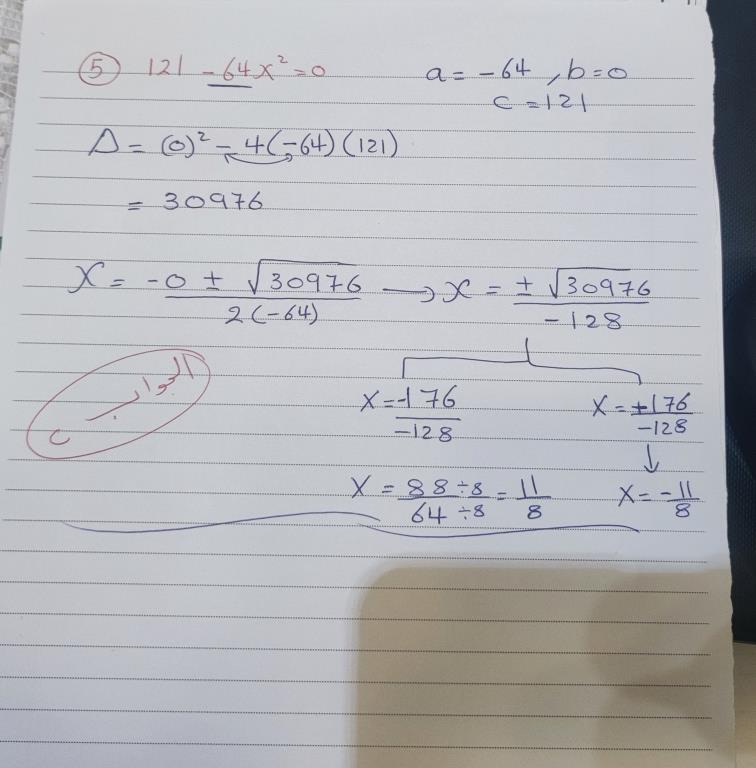 ⑤ 121 - 64x² = 0    a = -64 , b = 0
c = 121
Δ = (0)² - 4(-64)(121)
= 30976
x = -0 ± √30976 / 2(-64) → x = ± √30976 / -128
x = -176 / -128    x = +176 / -128
x = 88 ÷8 / 64 ÷8 = 11 / 8    x = -11 / 8
الجواب c